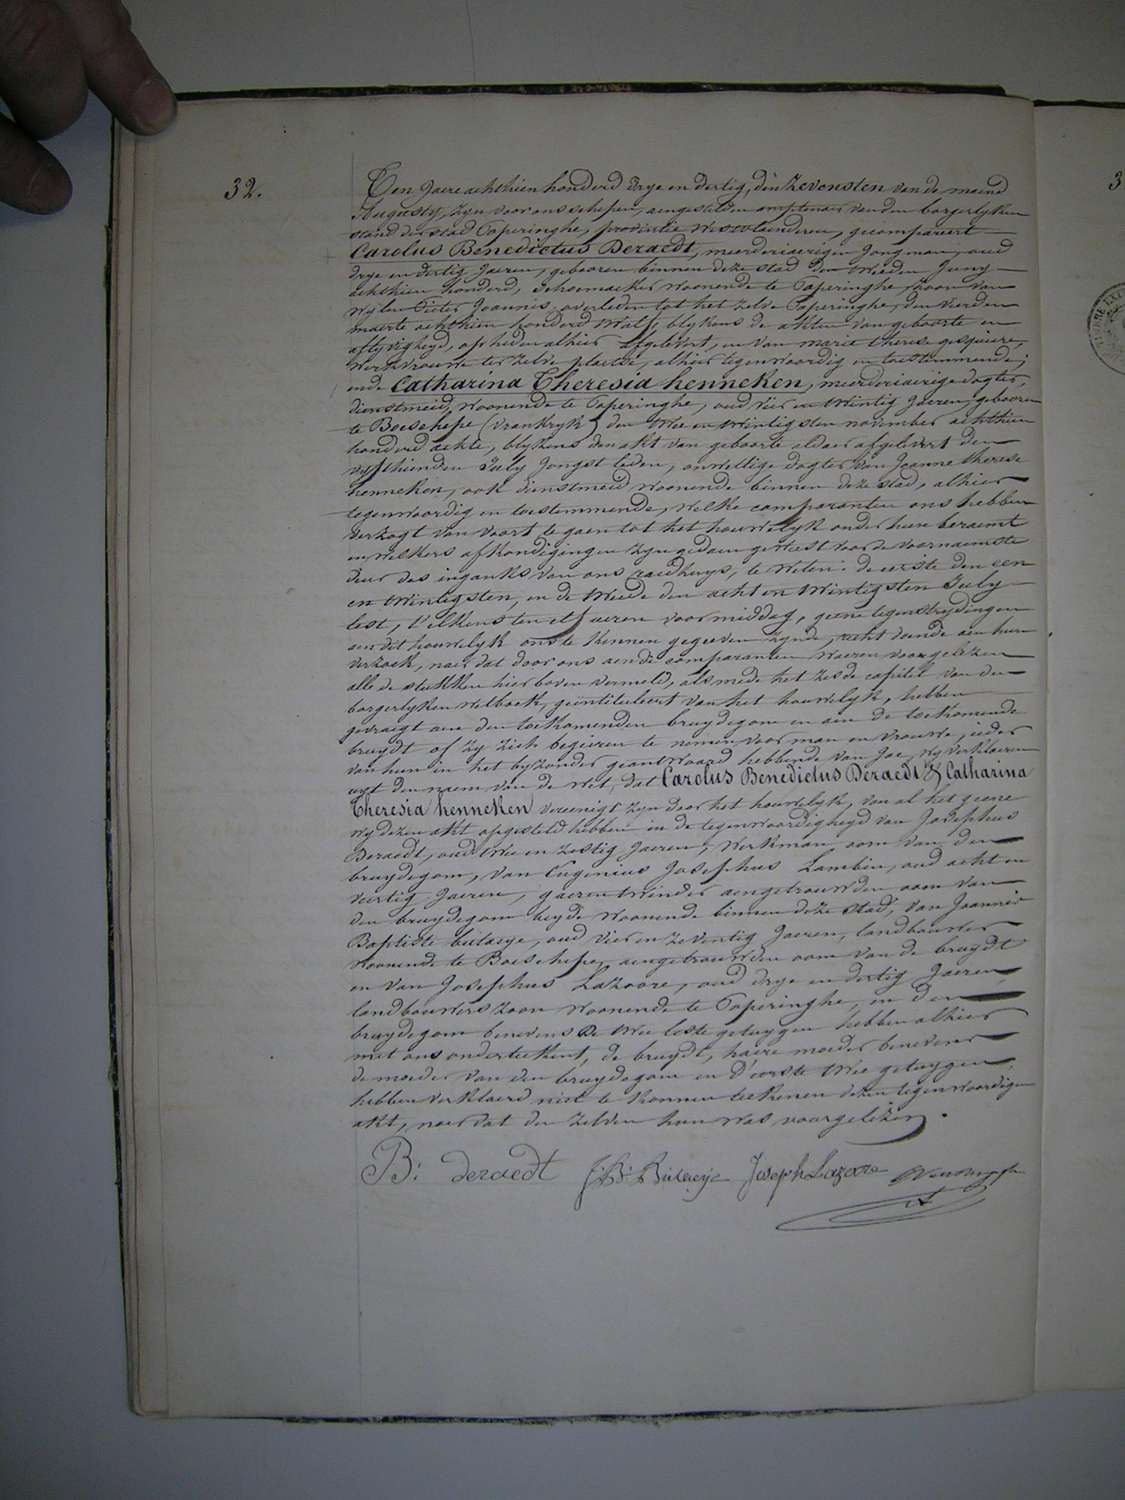 32.
Ten Jaere achthien honderd drye en dertig, den zevensten van de maend
Augusty, zyn voor ons schepen, aengestelden amptenaer van den borgerlyken
stand der stad Poperinghe, provintie Westvlaenderen, gecompareert
Carolus Benedictus Deraedt, meerderjaerigen Jongman, oud
drye en dertig Jaeren, gebooren binnen deze stad den tweeden Juny
achthien honderd, Schoemaeker woonende te Poperinghe, zoon van
wylen Pieter Joannis, overleden tot het zelve Poperinghe, den vierden
maerte achthien honderd twalf, blykens de akten van geboorte en
aflyvigheyd, op heden alhier afgelevert, en van marie therese gesquiere,
werkvrouwe ter zelve plaetse, alhier tegenwoordig en toestemmende;
ende Catharina Theresia henneken, meerderjaerige dogter,
dienstmeid, woonende te Poperinghe, oud vier en twintig Jaeren, gebooren
te Boeschepe (Vrankryk) den twee en twintigsten november achthien
honderd achte, blykens den akt van geboorte aldaer afgelevert den
vyfthienden July Jongst leden, onwettige dogter van Joanne therese
henneken, ook dienstmeid woonende binnen deze stad, alhier
tegenwoordig en toestemmende, welke comparanten ons hebben
verzogt van voort te gaen tot het houwelyk onder hun beraemt
en welkers afkondigingen zyn gedaen geweest voor de voornaemste
deur des ingangs van ons raedhuys, te weten: de eerste den een
en twintigsten, en de tweede den acht en twintigsten July
lest, t'elkens ten elf uren voormiddag, geene tegenstrydingen
aen dit houwelyk ons te kennen gegeeven zynde, recht doende aen hun
verzoek, naer dat door ons aen de comparanten waeren voorgelezen
alle de stukken hier boven vermeld, alsmede het zesde capittel van den
borgerlyken wetboek, geïntituleert van het houwelyk, hebben
gevraegt aen den toekomenden bruydegom en aen de toekomende
bruydt of zy zich begeeren te nemen voor man en vrouwe, ieder
van hun in het byzonder geantwoord hebbende van Jae, wy verklaeren
uyt den naem van de wet, dat Carolus Benedictus Deraedt & Catharina
Theresia henneken vereenigt zyn door het houwelyk, van al het geene
wy dezen akt opgesteld hebben in de tegenwoordigheyd van Josephus
Deraedt, oud twee en zestig Jaeren, werkman, oom van den
bruydegom, van Eugenius Josephus Lambin, oud acht en
veertig Jaeren, gaerentwinder aengetrouwden oom van
den bruydegom beyde woonende binnen deze stad, van Joannes
Baptiste bulaeye, oud vier en zeventig Jaeren, landbouwer
woonende te Boeschepe, aengetrouwden oom van de bruydt
en van Josephus Lazoore, oud drye en dertig Jaeren
landbouwers zoon woonende te Poperinghe, en den
bruydegom benevens de twee leste getuygen hebben alhier
met ons onderteekent, de bruydt, haere moeder benevens
de moeder van den bruydegom en d'eerste twee getuygen
hebben verklaerd niet te konnen teekenen dezen tegenwoordigen
akt, naer dat den zelven hun was voorgelezen.
B: deraedt J: B: Bulaeye Joseph Lazoore
3